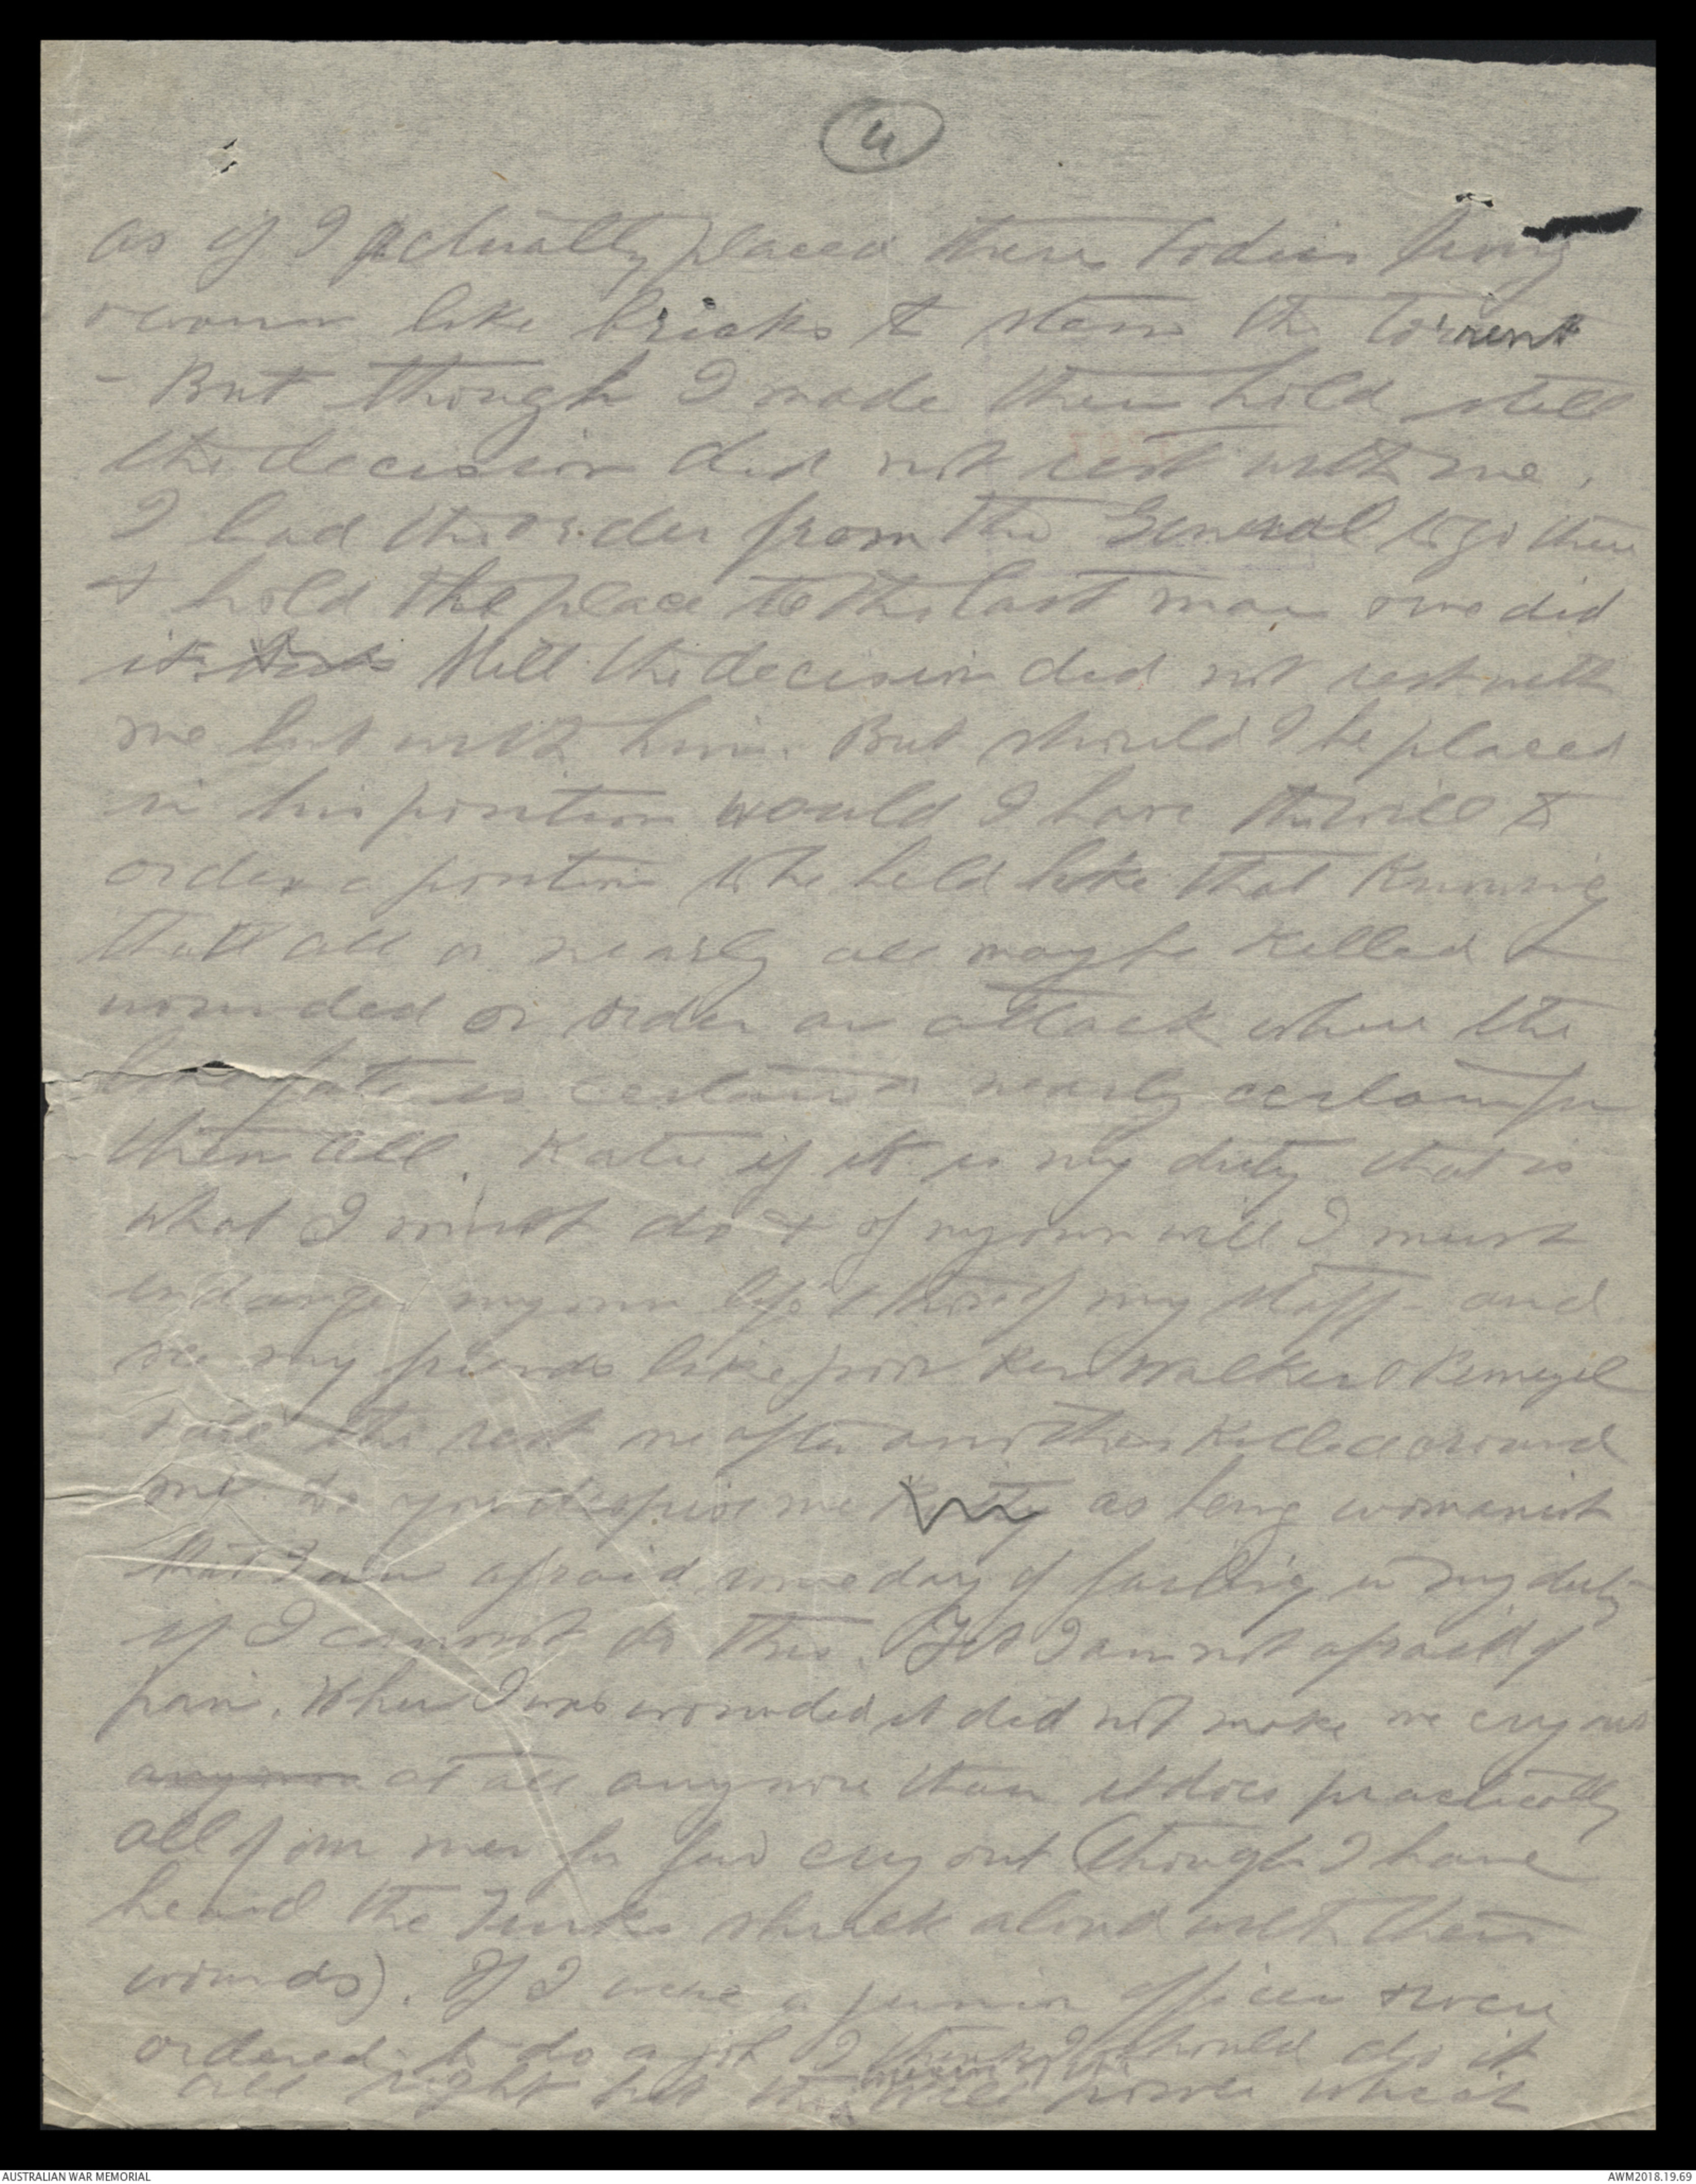 4
as if I actually placed these bodies living
& warm like bricks to stem the torrent
- But though I made them hold still
the decision did not rest with me.
I had the order from the General to go there
& hold the place to the last man & we did
it. Still the decision did not rest with
me but with him. But should I be placed
in his position would I have the will to
order a position to be held like that knowing
that all or nearly all may be killed &
wounded or order an attack where the
like fate is certain or nearly certain for
them all. Katie if it is my duty that is
what I must do & of my own will I must
endanger my own life & those of my staff - and
see my friends like poor Ken Walker &
& all the rest one after another killed around
me. do you despise me Katy as being womanish
that I am afraid some day of failing in my duty
if I cannot do this. Yet I am not afraid of
pain. When I was wounded it did not make me cry out
anymore at all anymore than it does practically
all of our men for few cry out (though I have
heard the Turks shriek aloud with their
wounds). If I were a junior officer & were
ordered to do a job I think I should do it
all right but the will power which
AUSTRALIAN WAR MEMORIAL
AWM2018.19.69